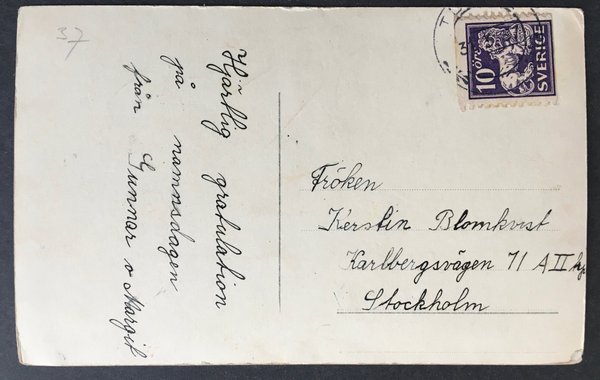 37
Hjärtlig gratulation
på namnsdagen
från Gunnar o Margit
10 öre
SVERIGE
Fröken
Kerstin Blomkvist
Karlbergsvägen 71 A II
Stockholm